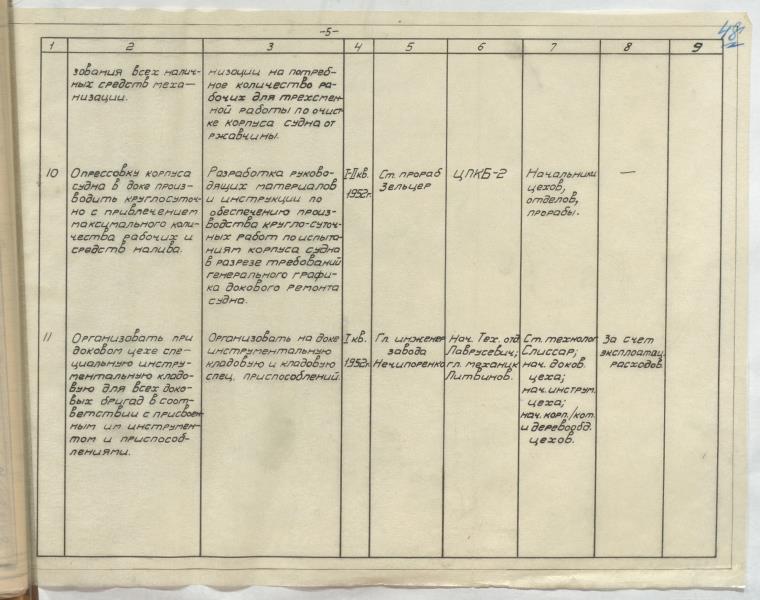 -5-
48
1 2 3 4 5 6 7 8 9
зования всех налич-
ных средств меха-
низации.
низации на потреб-
ное количество ра-
бочих для трехсмен-
ной работы по очист
ке корпуса судна от
ржавчины.
10
Опрессовку корпуса
судна в доке произ-
водить круглосуточ-
но с привлечением
максимального коли-
чества рабочих и
средств налива.
Разработка руково-
дящих материалов
и инструкции по
обеспечению произ-
водства кругло-суточ-
ных работ по испыта-
ниям корпуса судна
в разрезе требований
генерального графи-
ка докового ремонта
судна.
I-II кв.
1952г.
Ст. прораб
Зельцер
ЦПКБ-2
Начальники
цехов,
отделов,
прорабы.
—
11
Организовать при
доковом цехе спе-
циальную инстру-
ментальную кладо-
вую для всех доко-
вых бригад в соот-
ветствии с присвоен-
ным им инструмен-
том и приспособ-
лениями.
Организовать на доке
инструментальную
кладовую и кладовую
спец. приспособлений.
I кв.
1952г.
Гл. инженер
завода
Нечипоренко
Нач. Тех. отд
Лаврусевич;
гл. механик
Литвинов.
Ст. технолог
Слиссар;
нач. доков.
цеха;
нач. инструм.
цеха;
нач. корп./кот.
и деревообд.
цехов.
За счет
эксплоатац.
расходов.